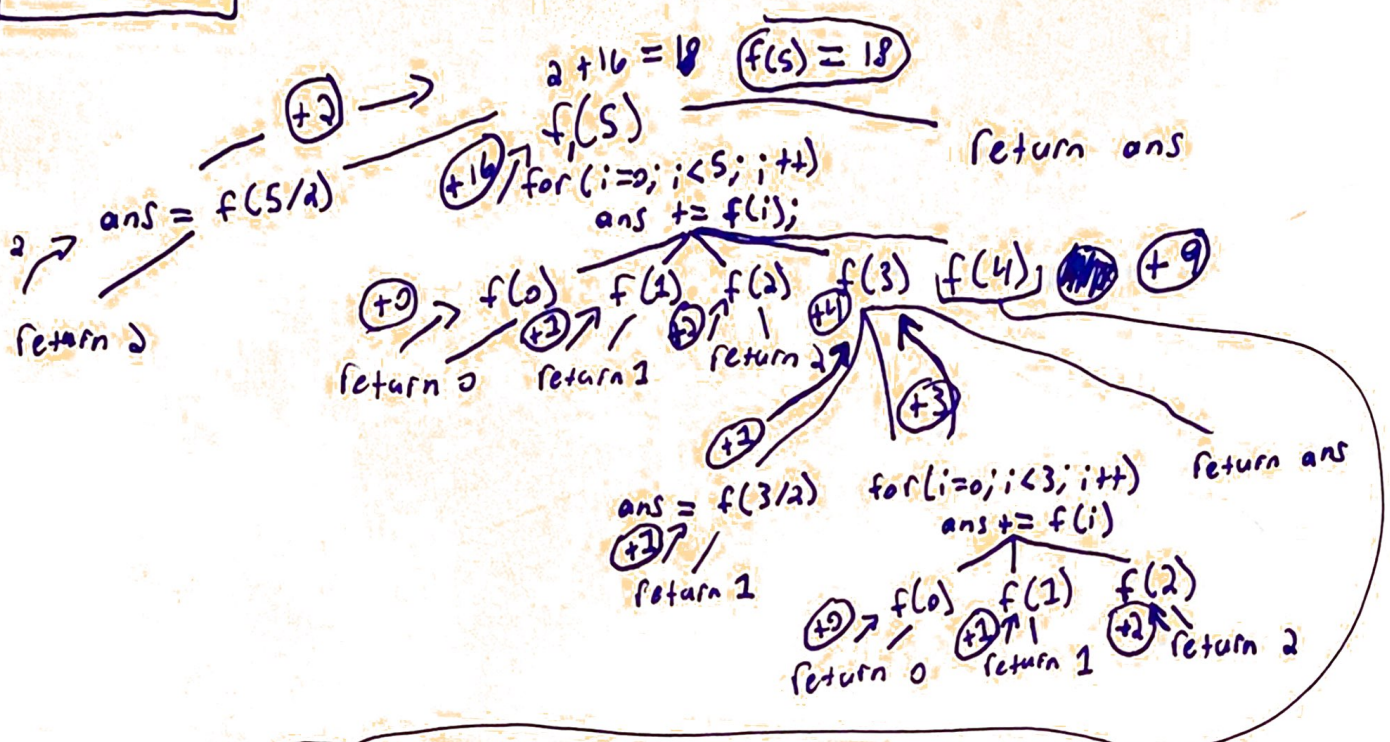 2 + 16 = 18 f(5) = 18
+2
f(5)
return ans
+16
for (i=0; i<5; i++)
ans = f(5/2)
ans += f(i);
2
return 2
f(0) f(1) f(2) f(3) f(4) +9
+0 +1 +2 +4
return 0 return 1 return 2
+3
+1
return ans
ans = f(3/2)
for(i=0; i<3; i++)
ans += f(i)
+1
return 1
f(0) f(1) f(2)
+0 +1 +2
return 0 return 1 return 2